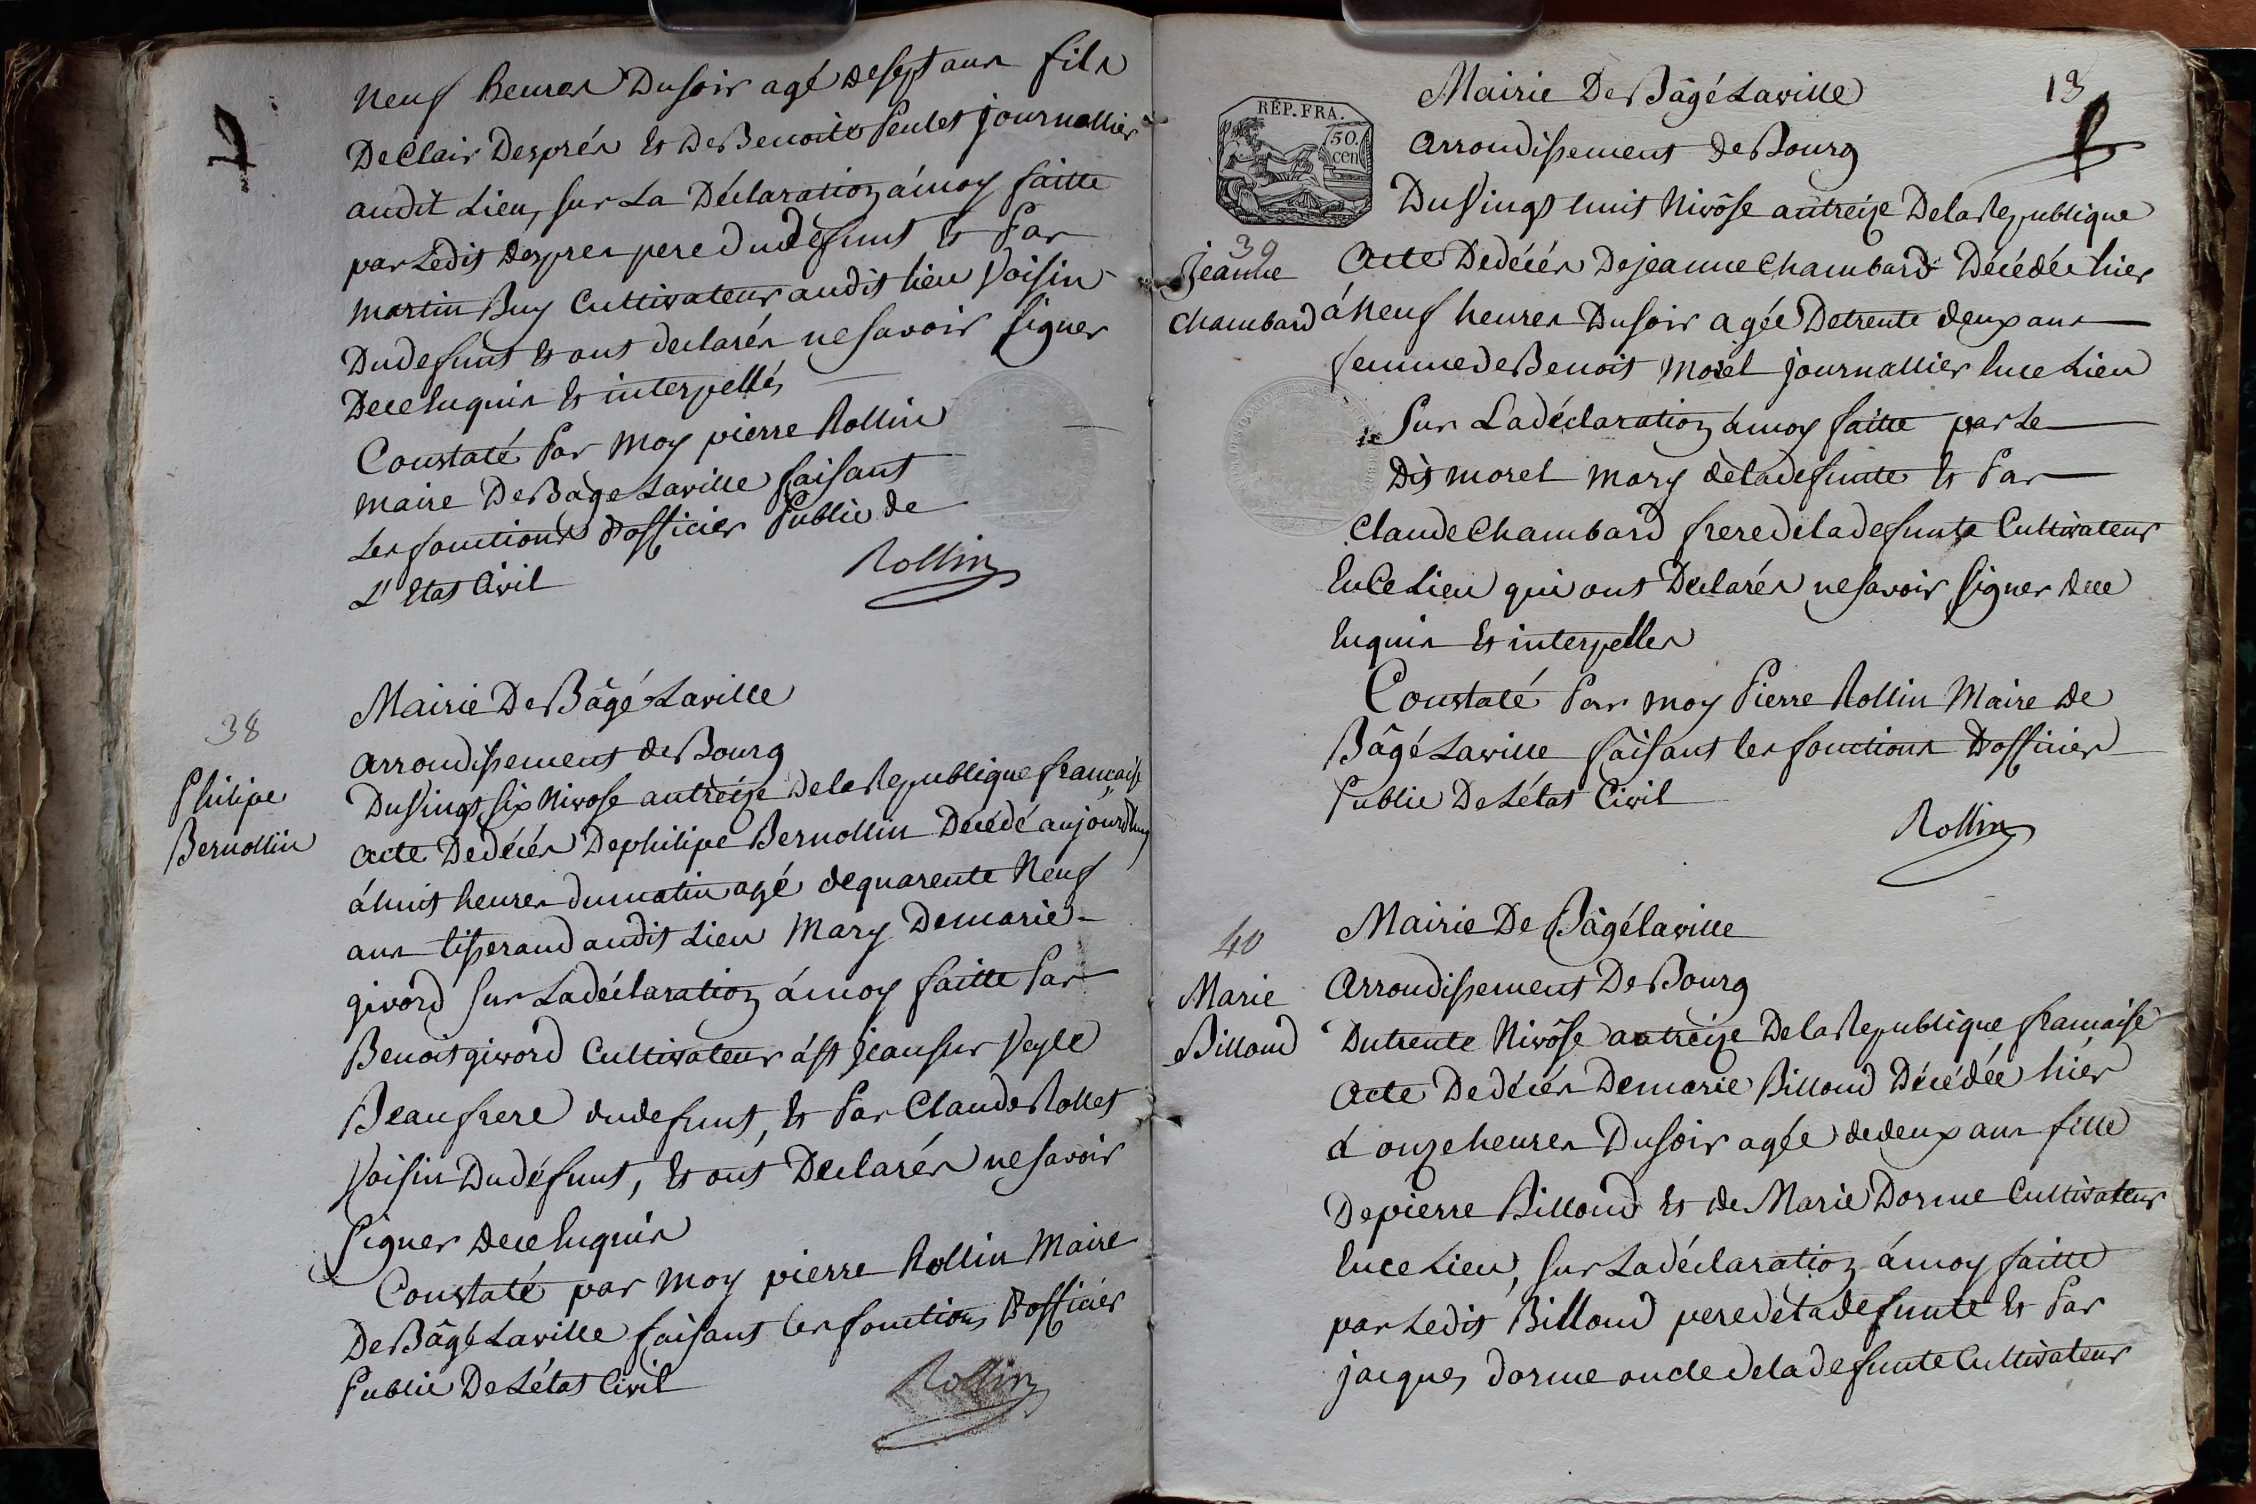 neuf heures Du soir agé de sept ans fils
De Clair Desprès et De Benoite Feulet journallier
audit Lieu, sur La Déclaration á moy faitte
par Ledit despres pere du défunt et Par
martin Buy Cultivateur audit lieu Voisin
Du defunt et ont declarés ne savoir signer
De ce enquis et interpellés
Constaté Par moy pierre Rollin
maire De Bâgé Laville faisant
Les fonctions d'officier Public de
L'Etat Civil
Rollin
38
Philipe
Bernollin
Mairie De Bâgé Laville
arrondissement de Bourg
Du Vingt six Nivose an treize De la Republique francaise
acte De décés De philipe Bernollin Décédé aujourdhuy
á huit heures du matin agé de quarente Neuf
ans tisserand audit Lieu Mary De marie
givord sur La déclaration á moy faitte Par
Benoit givord Cultivateur á St Jean sur Veyle
Beaufrere du defunt, et Par Claude Rollet
Voisin Du défunt, et ont Declarés ne savoir
signer de ce enquis
Constaté par moy pierre Rollin Maire
De Bâgé Laville faisant les fonctions D'officier
Public De L'état Civil
Rollin
13
RÉP. FRA.
50.
cen
Mairie De Bâgé Laville
arrondissement de Bourg
Du Vingt huit Nivôse an treize De la Republique
39
Jeanne
Chambard
acte De décés De jeanne Chambard Décédée hier
á Neuf heures Du soir agée De trente deux ans
femme de Benoit Morel journallier en ce Lieu
Sur La déclaration á moy faitte par Le
Dit morel mary de la defunte et Par
Claude Chambard frere de la defunte Cultivateur
en Ce Lieu qui ont Declarés ne savoir signer de ce
enquis et interpelles
Constaté Par moy Pierre Rollin Maire de
Bâgé Laville faisant les fonctions D'officier
Public De L'état Civil
Rollin
40
Marie
Billoud
Mairie De Bâgé laville
arrondissement De Bourg
Du trente Nivôse an treize De la Republique francaise
acte De décés De marie Billoud Décédée hier
á onze heures Du soir agée de deux ans fille
De pierre Billoud et de Marie Dorme Cultivateur
en ce Lieu, sur La déclaration á moy faitte
par Ledit Billoud pere de la defunte et Par
jacques dorme oncle de la defunte Cultivateur